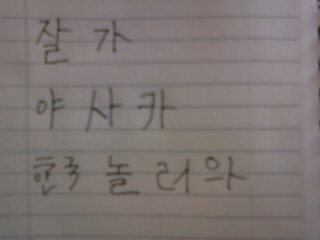 잘 가
야 사 카
한국 놀 러 와